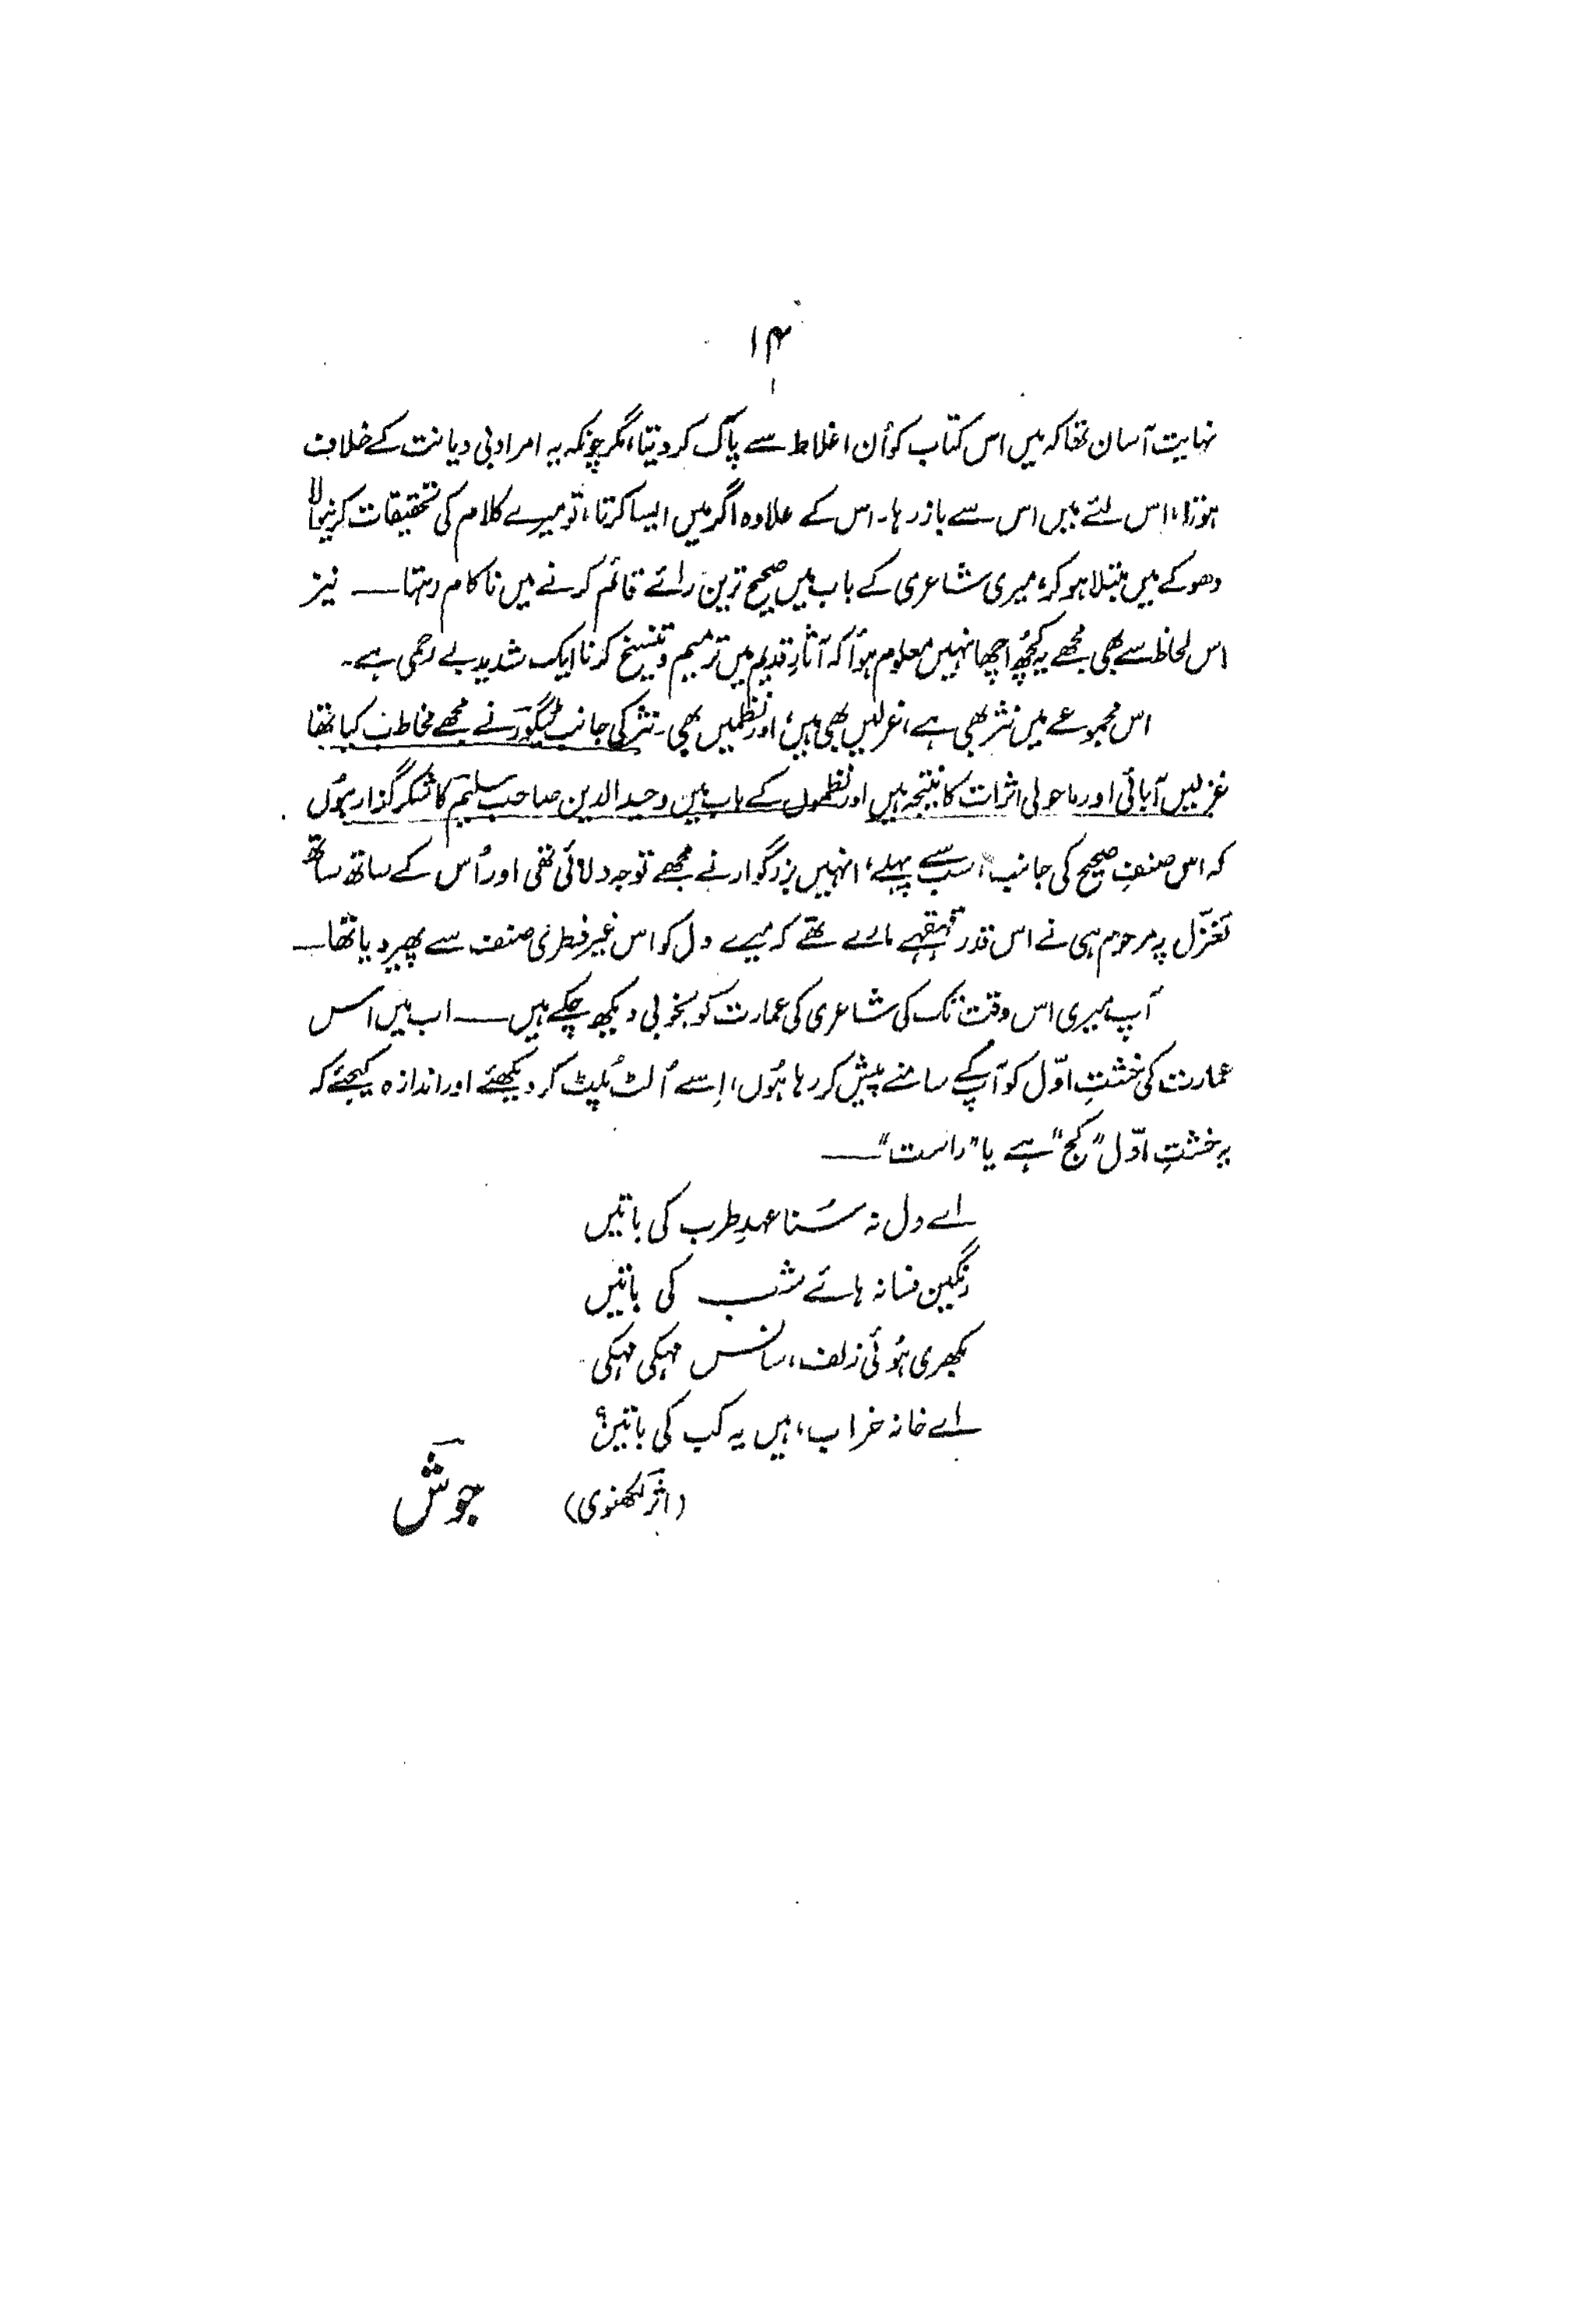 ۱۴
نہایت آسان تھا کہ میں اس کتاب کو اُن اغلاط سے پاک کر دیتا، مگر چونکہ یہ امر ادبی دیانت کے خلاف
ہوتا، اس لئے میں اس سے باز رہا۔ اس کے علاوہ اگر میں ایسا کرتا، تو میرے کلام کی تحقیقات کرنیوالا
دھوکے میں مبتلا ہو کر، میری شاعری کے باب میں صحیح ترین رائے قائم کرنے میں ناکام رہتا ـــ نیز
اس لحاظ سے بھی مجھے یہ کچھ اچھا نہیں معلوم ہوا کہ آثارِ قدیم میں ترمیم و تنسیخ کرنا ایک شدید بے رحمی ہے۔
اس مجموعے میں نثر بھی ہے، غزلیں بھی ہیں، اور نظمیں بھی۔ نثر کی جانب ٹیگور نے مجھے مخاطب کیا تھا
غزلیں آبائی اور ماحولی اثرات کا نتیجہ ہیں اور نظموں کے باب میں وحید الدین صاحب سلیم کا شکر گذار ہوں
کہ اس صنفِ صحیح کی جانب، سب سے پہلے، انہیں بزرگوار نے مجھے توجہ دلائی تھی اور اُس کے ساتھ ساتھ
تغزّل پر مرحوم ہی نے اس قدر قہقہے مارے تھے کہ میرے دل کو اس غیر فطری صنف سے پھیر دیا تھا ـــ
آپ میری اس وقت تک کی شاعری کی عمارت کو بخوبی دیکھ چکے ہیں ـــ اب میں اس
عمارت کی خشتِ اوّل کو آپ کے سامنے پیش کر رہا ہُوں، اِسے اُلٹ پُلٹ کر دیکھئے اور اندازہ کیجئے کہ
یہ خشتِ اوّل "کج" ہے یا "راست" ـــ
اے دل نہ سُنا عہدِ طرب کی باتیں
رنگین فسانہ ہائے شب کی باتیں
بکھری ہُوئی زلف، سانس مہکی مہکی
اے خانہ خراب، ہیں یہ کب کی باتیں؟
(اثر لکھنوی)
جوش